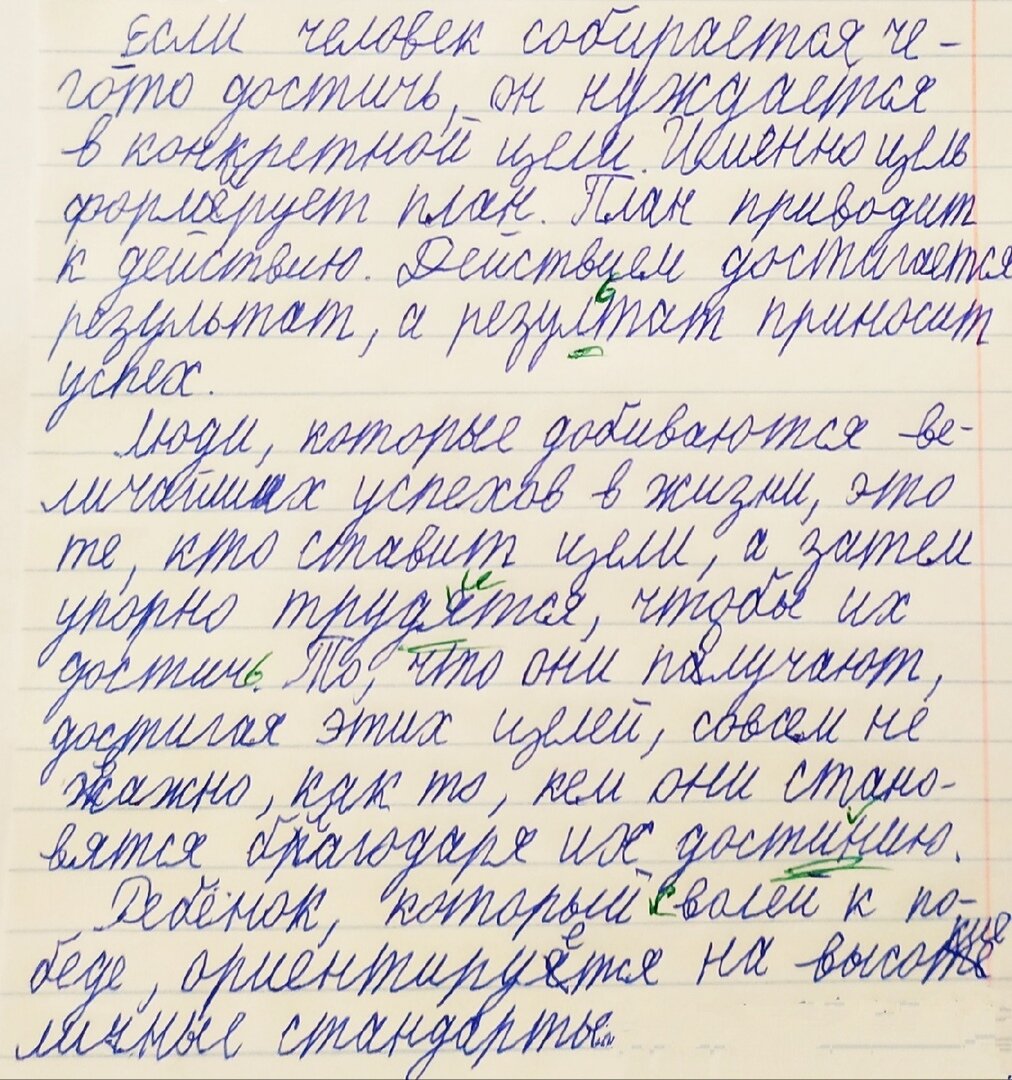 Если человек собирается че-
гото достичь, он нуждается
в конкретной цели. Именно цель
формерует план. План приводит
к действию. Действием достигается
результат, а резултат приносит
успех.
Люди, которые добиваются ве-
личайших успехов в жизни, это
те, кто ставит цели, а затем
упорно трудятся, чтобы их
достичь. То, что они получают,
достигая этих целей, совсем не
важно, как то, кем они стано-
вятся благодаря их достинию.
Ребёнок, который с волей к по-
беде, ориентируется на высокие
личные стандарты.